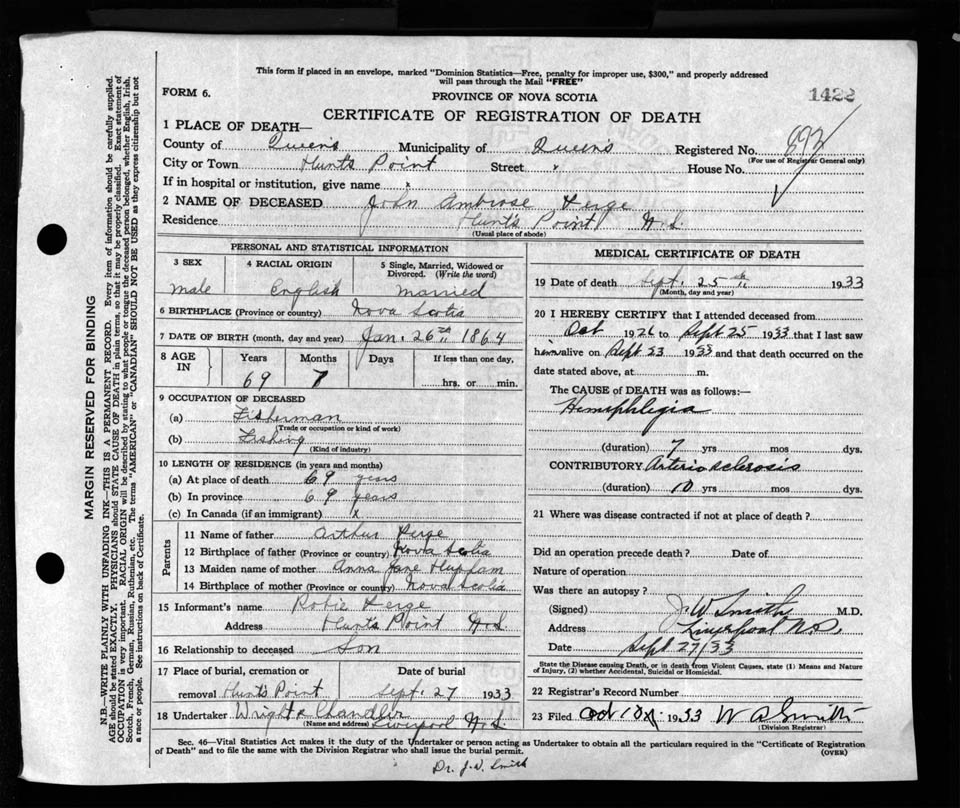 This form if placed in an envelope, marked "Dominion Statistics—Free, penalty for improper use, $300," and properly addressed
will pass through the Mail "FREE"
FORM 6.
PROVINCE OF NOVA SCOTIA
1422
CERTIFICATE OF REGISTRATION OF DEATH
1 PLACE OF DEATH—
County of Queens Municipality of Queens Registered No. 892
(For use of Registrar General only)
City or Town Hunts Point Street House No.
If in hospital or institution, give name x
2 NAME OF DECEASED John Ambrose
Residence Hunt's Point N.S.
(Usual place of abode)
PERSONAL AND STATISTICAL INFORMATION
3 SEX 4 RACIAL ORIGIN 5 Single, Married, Widowed or Divorced. (Write the word)
Male English Married
6 BIRTHPLACE (Province or country) Nova Scotia
7 DATE OF BIRTH (month, day and year) Jan. 26th 1864
8 AGE IN Years Months Days If less than one day,
69 7 hrs. or min.
9 OCCUPATION OF DECEASED
(a) Fisherman
(Trade or occupation or kind of work)
(b) Fishing
(Kind of industry)
10 LENGTH OF RESIDENCE (in years and months)
(a) At place of death 69 years
(b) In province 69 years
(c) In Canada (if an immigrant) x
Parents
11 Name of father Arthur
12 Birthplace of father (Province or country) Nova Scotia
13 Maiden name of mother Anna Jane Hupham
14 Birthplace of mother (Province or country) Nova Scotia
15 Informant's name Robie
Address Hunts Point N.S.
16 Relationship to deceased Son
17 Place of burial, cremation or removal Hunt's Point Date of burial Sept. 27 1933
18 Undertaker Wright & Chandler
(Name and address) Liverpool N.S.
MEDICAL CERTIFICATE OF DEATH
19 Date of death Sept. 25th 1933
(Month, day and year)
20 I HEREBY CERTIFY that I attended deceased from
Oct 1926 to Sept 25 1933 that I last saw
him alive on Sept 23 1933 and that death occurred on the
date stated above, at m.
The CAUSE of DEATH was as follows:—
Hemiphlegia
(duration) 7 yrs mos dys.
CONTRIBUTORY Arterio sclerosis
(duration) 10 yrs mos dys.
21 Where was disease contracted if not at place of death?
Did an operation precede death? Date of
Nature of operation
Was there an autopsy?
(Signed) J W Smith M.D.
Address Liverpool N.S.
Date Sept 27/33
State the Disease causing Death, or in death from Violent Causes, state (1) Means and Nature
of Injury, (2) whether Accidental, Suicidal or Homicidal.
22 Registrar's Record Number
23 Filed Oct 1933 W Smith
(Division Registrar)
Sec. 46—Vital Statistics Act makes it the duty of the Undertaker or person acting as Undertaker to obtain all the particulars required in the "Certificate of Registration
of Death" and to file the same with the Division Registrar who shall issue the burial permit.
(OVER)
Dr. J. W. Smith
MARGIN RESERVED FOR BINDING
N.B.—WRITE PLAINLY WITH UNFADING INK—THIS IS A PERMANENT RECORD. Every item of information should be carefully supplied.
AGE should be stated EXACTLY. PHYSICIANS should STATE CAUSE OF DEATH in plain terms, so that it may be properly classified. Exact statement of
OCCUPATION is very important. RACIAL ORIGIN will be described by stating to what people or tongue the deceased person belonged, whether English, Irish,
Scotch, French, German, Russian, Ruthenian, etc. The terms "AMERICAN" or "CANADIAN" SHOULD NOT BE USED as they express citizenship but not
a race or people. See instructions on back of Certificate.